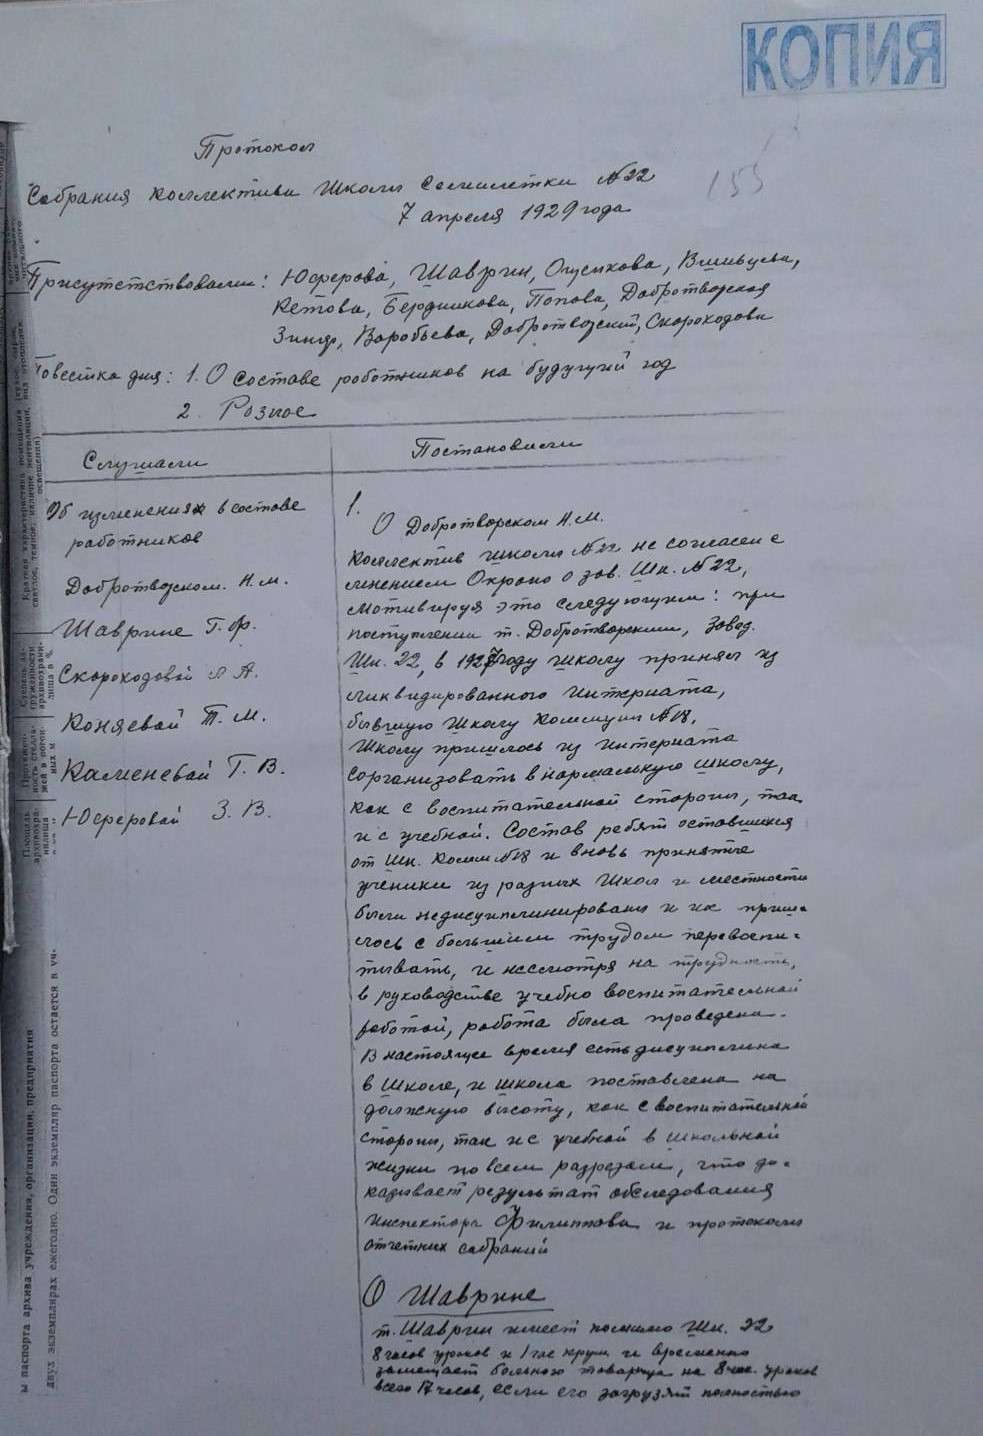 КОПИЯ
155
Протокол
Собрания коллектива Школы Семилетки №22
7 апреля 1929 года
Присутствовали: Юферова, Шаврин, Вшивцева,
Кетова, Бердникова, Попова, Добротворская
Зинд, Воробьева, Добротворский, Скороходова
Повестка дня: 1. О составе работников на будущий год
2. Розное
Слушали
Постановили
Об изменениях в составе
работников
Добротворском. Н.М.
Шаврине Г.Ф.
Скороходовой А.
Коняевой Т.М.
Каменевой Г.В.
Юферовой З.В.
1.
О Добротворском Н.М.
Коллектив школы №22 не согласен с
мнением Окроно о зав. Шк. №22,
мотивируя это следующим: при
поступлении т. Добротворским, Завед.
Шк. 22, в 1927 году школу принял из
ликвидированного интерната,
бывшую Школу Коммуны №18,
Школу пришлось из интерната
сорганизовать в нормальную школу,
как с воспитательной стороны, так
и с учебной. Состав ребят оставшихся
от Шк. Комм №18 и вновь принятые
ученики из разных школ и местности
были недисциплинированы и их приш-
лось с большим трудом перевоспи-
тывать, и несмотря на трудность,
в руководстве учебно воспитательной
работой, работа была проведена.
В настоящее время есть дисциплина
в школе, и школа поставлена на
должную высоту, как с воспитательной
стороны, так и с учебной в школьной
жизни по всем разрезам, что до-
казывает результат обследования
инспектора Филиппова и протоколы
отчетных собраний
О Шаврине
т. Шаврин имеет помимо Шк. 22
8 часов уроков и 1 час круж. и временно
замещает больного товарища на 8 час. уроков
всего 17 часов, если его загрузят полностью
ы паспорта архива учреждения, организации, предприятия
двух экземплярах ежегодно. Один экземпляр паспорта остается в уч-